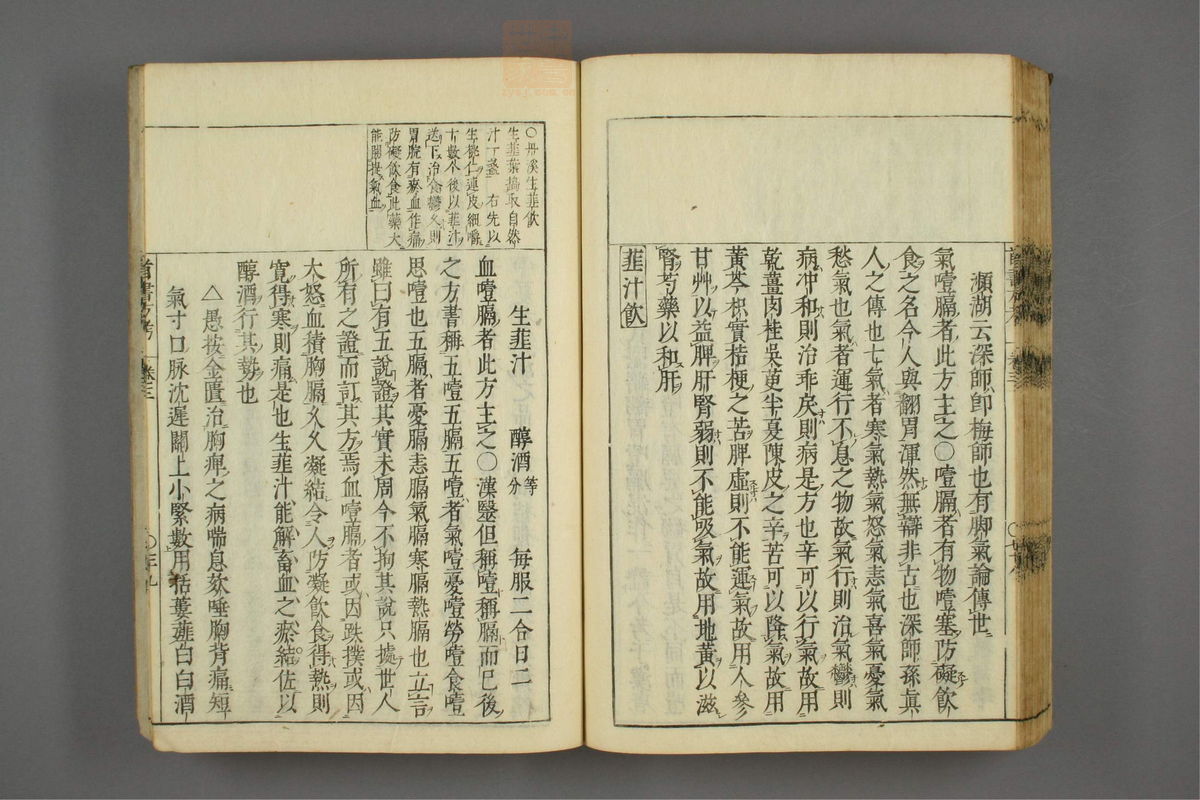 瀕湖云深師卽梅師也有脚氣論傳世
氣噎膈者此方主之○噎膈者有物噎塞防礙飲
食之名今人與翻胃渾然無辯非古也深師孫眞
人之傳也七氣者寒氣熱氣怒氣恚氣喜氣憂氣
愁氣也氣者運行不息之物故氣行則治氣鬱則
病冲和則治乖戾則病是方也辛可以行氣故用
乾薑肉桂吳茰半夏陳皮之辛苦可以降氣故用
黃芩枳實桔梗之苦脾虛則不能運氣故用人參
甘艸以益脾肝腎弱則不能吸氣故用地黃以滋
腎芍藥以和肝
韮汁飲
○丹溪生韮飲
生韮葉搗取自然
汁一盞 右先以
生桃仁連皮細嚼
十數个後以韮汁
送下治食鬱久則
胃脘有瘀血作痛
防礙飲食此藥大
能開提氣血
生韮汁 醇酒等分 每服二合日二
血噎膈者此方主之○漢毉但稱噎稱膈而已後
之方書稱五噎五膈五噎者氣噎憂噎勞噎食噎
思噎也五膈者憂膈恚膈氣膈寒膈熱膈也立言
雖曰有五說證其實未周今不拘其說只據世人
所有之證而訂其方焉血噎膈者或因跌撲或因
大怒血積胸膈久久凝結令人防凝飲食得熱則
寬得寒則痛是也生韮汁能解畜血之瘀結佐以
醇酒行其勢也
△愚按金匱治胸痺之病喘息欬唾胸背痛短
氣寸口脉沈遲關上小緊數用栝蔞薤白白酒